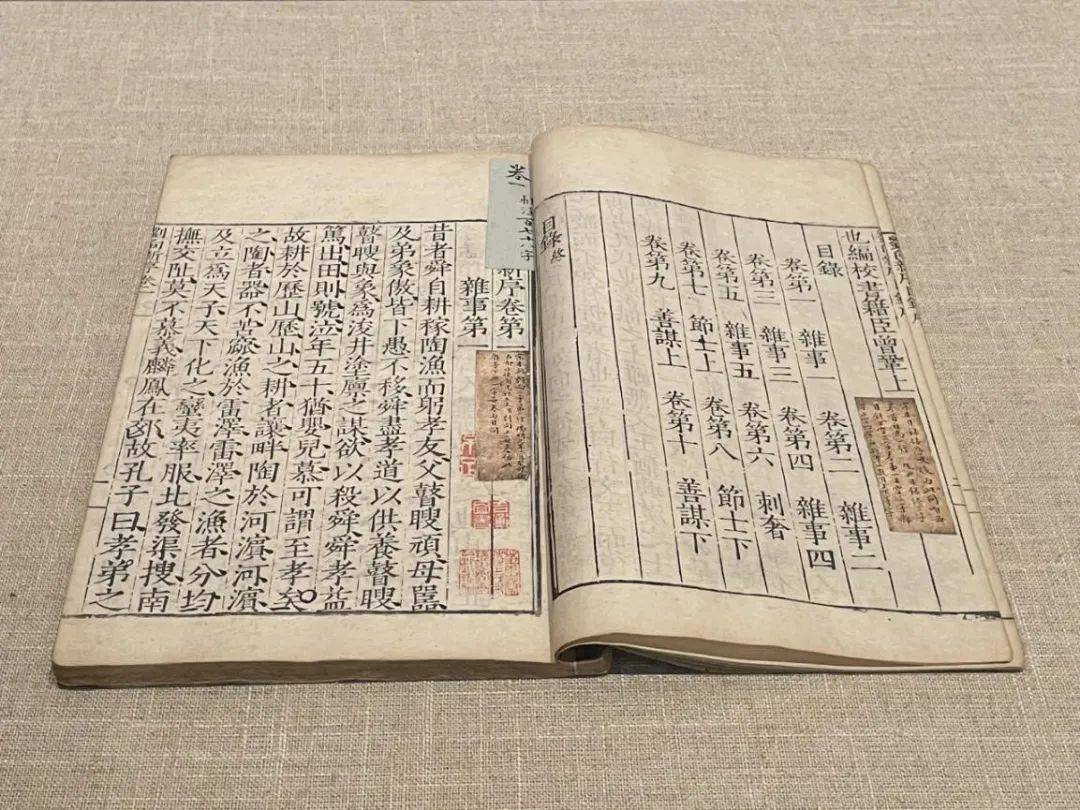 也編校書籍臣曾鞏上
目錄
卷第一 雜事一 卷第二 雜事二
卷第三 雜事三 卷第四 雜事四
卷第五 雜事五 卷第六 刺奢
卷第七 節士上 卷第八 節士下
卷第九 善謀上 卷第十 善謀下
目錄終
卷一
新序卷第一
雜事第一
昔者舜自耕稼陶漁而躬孝友父瞽瞍頑母嚚
及弟象傲皆下愚不移舜盡孝道以供養瞽瞍
瞽瞍與象爲浚井塗廩之謀欲以殺舜舜孝益
篤出田則號泣年五十猶嬰兒慕可謂至孝矣
故耕於歷山歷山之耕者讓畔陶於河濱河濱
之陶者器不苦窳漁於雷澤雷澤之漁者分均
及立爲天子天下化之蠻夷率服北發渠搜南
撫交阯莫不慕義麟鳳在郊故孔子曰孝弟之
劉向新序卷一